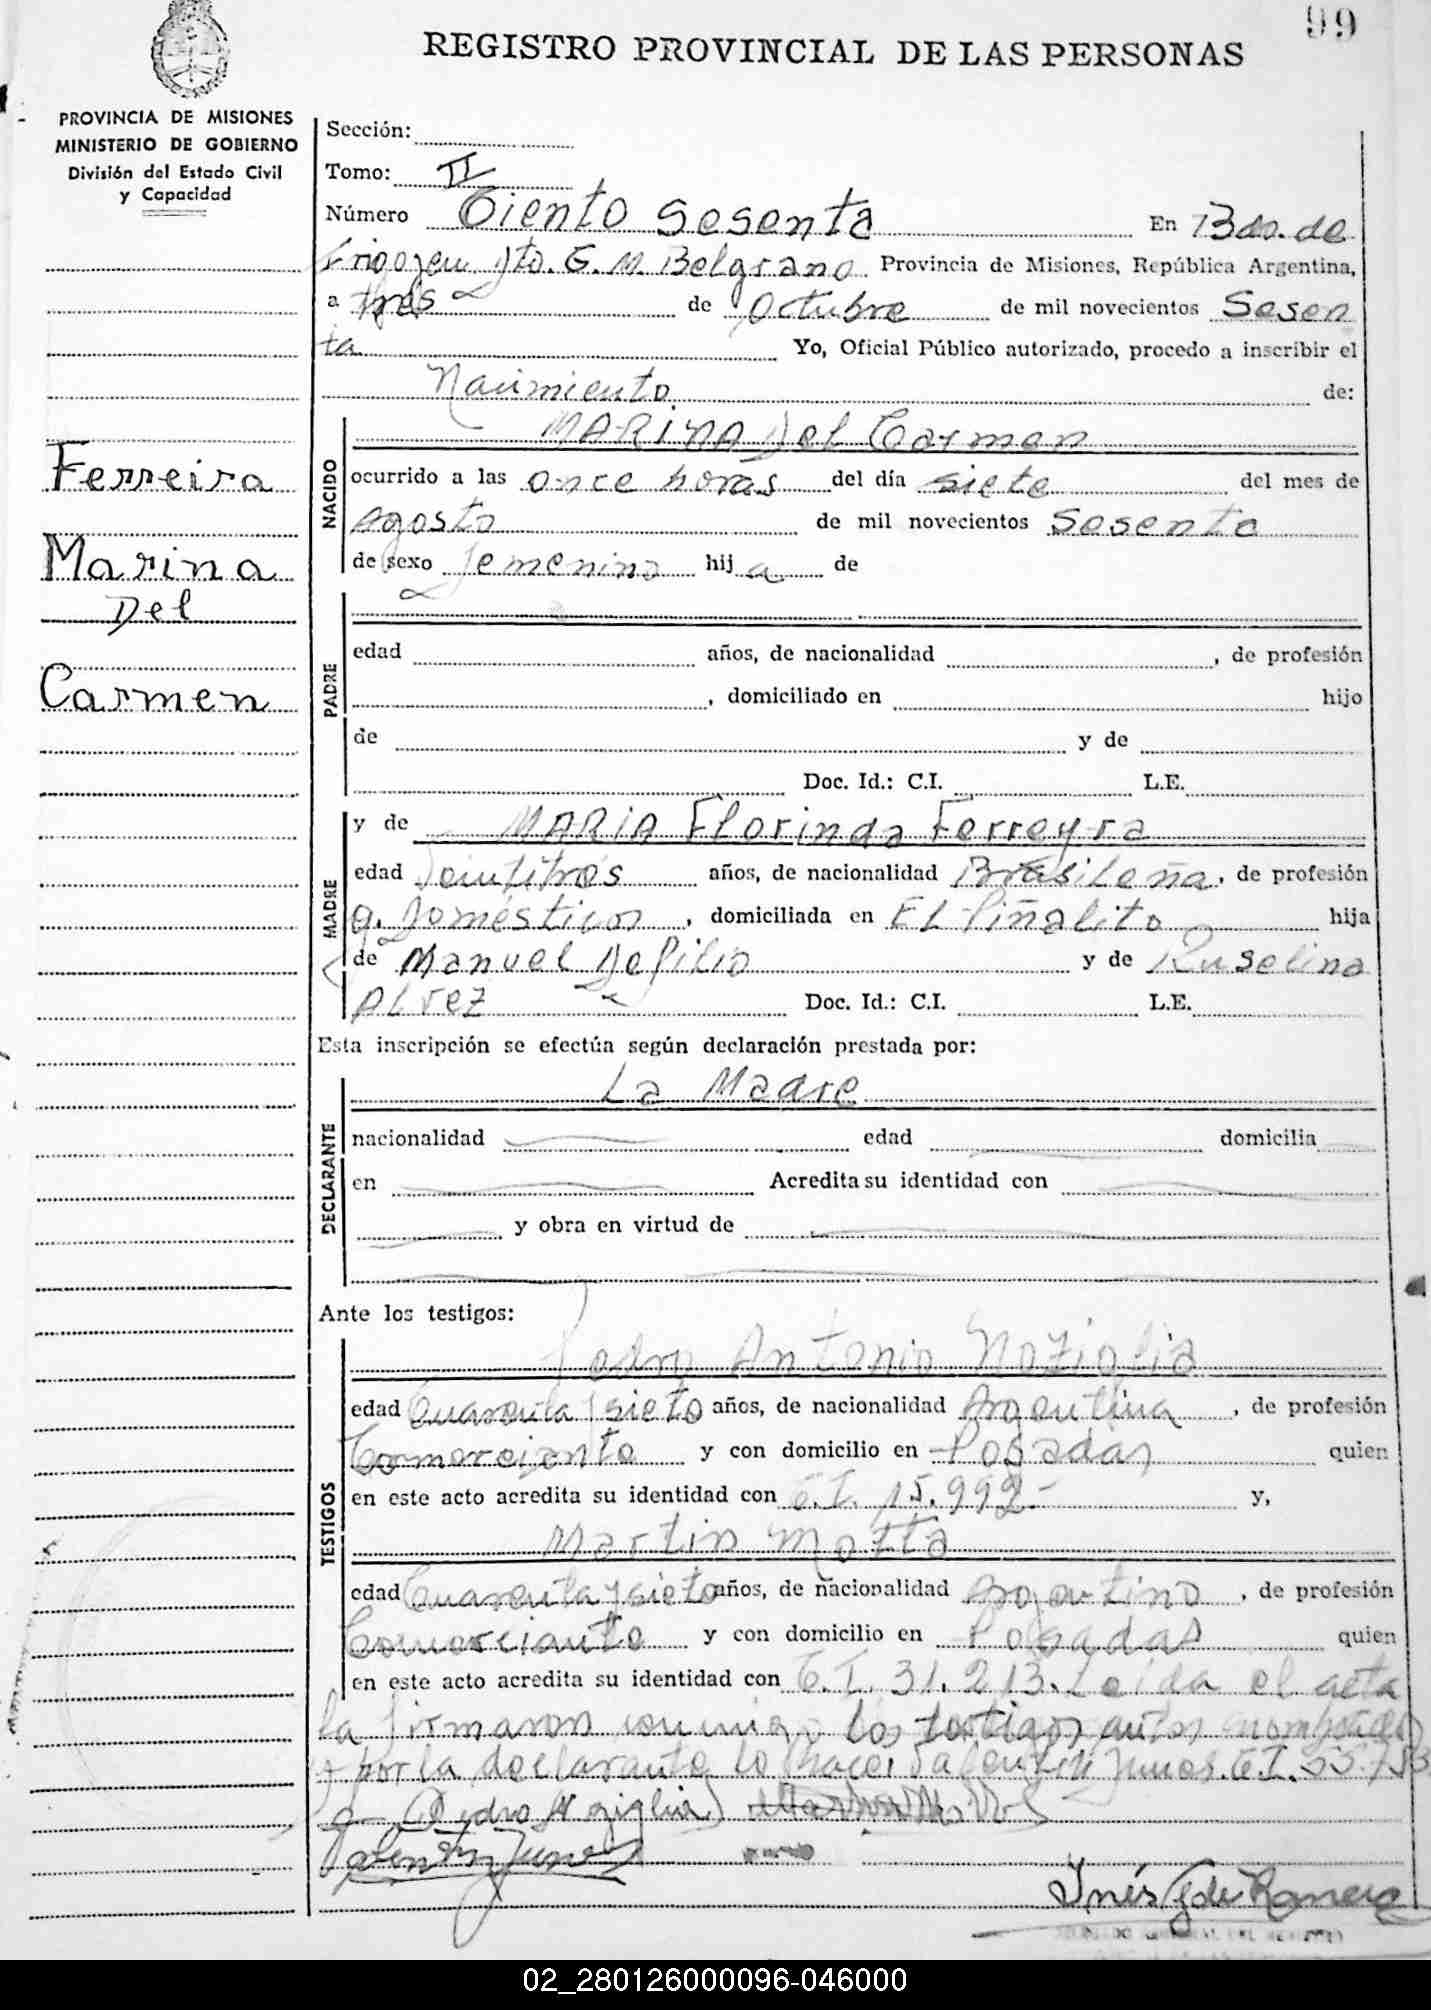 99
REGISTRO PROVINCIAL DE LAS PERSONAS
PROVINCIA DE MISIONES
MINISTERIO DE GOBIERNO
División del Estado Civil
y Capacidad
Ferreira
Marina
Del
Carmen
Sección:
Tomo: II
Número Ciento sesenta En Bdo. de
Irigoyen Dto. G. M. Belgrano Provincia de Misiones, República Argentina,
a tres de Octubre de mil novecientos Sesen
ta Yo, Oficial Público autorizado, procedo a inscribir el
Nacimiento de:
NACIDO
MARINA Del Carmen
ocurrido a las once horas del día siete del mes de
Agosto de mil novecientos Sesenta
de sexo femenino hija de
PADRE
edad años, de nacionalidad , de profesión
, domiciliado en hijo
de y de
Doc. Id.: C.I. L.E.
MADRE
y de MARIA Florinda Ferreyra
edad años, de nacionalidad Brasileña, de profesión
q. domésticos, domiciliada en EL Piñalito hija
de Manuel y de Ruselina
ALvez Doc. Id.: C.I. L.E.
Esta inscripción se efectúa según declaración prestada por:
DECLARANTE
La Madre
nacionalidad edad domicilia
en Acredita su identidad con
y obra en virtud de
Ante los testigos:
TESTIGOS
Pedro Antonio Noziglia
edad Cuarenta y siete años, de nacionalidad Argentina, de profesión
Comerciante y con domicilio en Posadas quien
en este acto acredita su identidad con C.I. 15.992.- y,
Martin Motta
edad Cuarenta y siete años, de nacionalidad Argentino, de profesión
Comerciante y con domicilio en Posadas quien
en este acto acredita su identidad con C.I. 31.213. Leida el acta
la firmaron conmigo los testigos antes nombrados
y por la declarante lo hace C.I. 55.753
Pedro Noziglia
Inés G de Romero
02_280126000096-046000